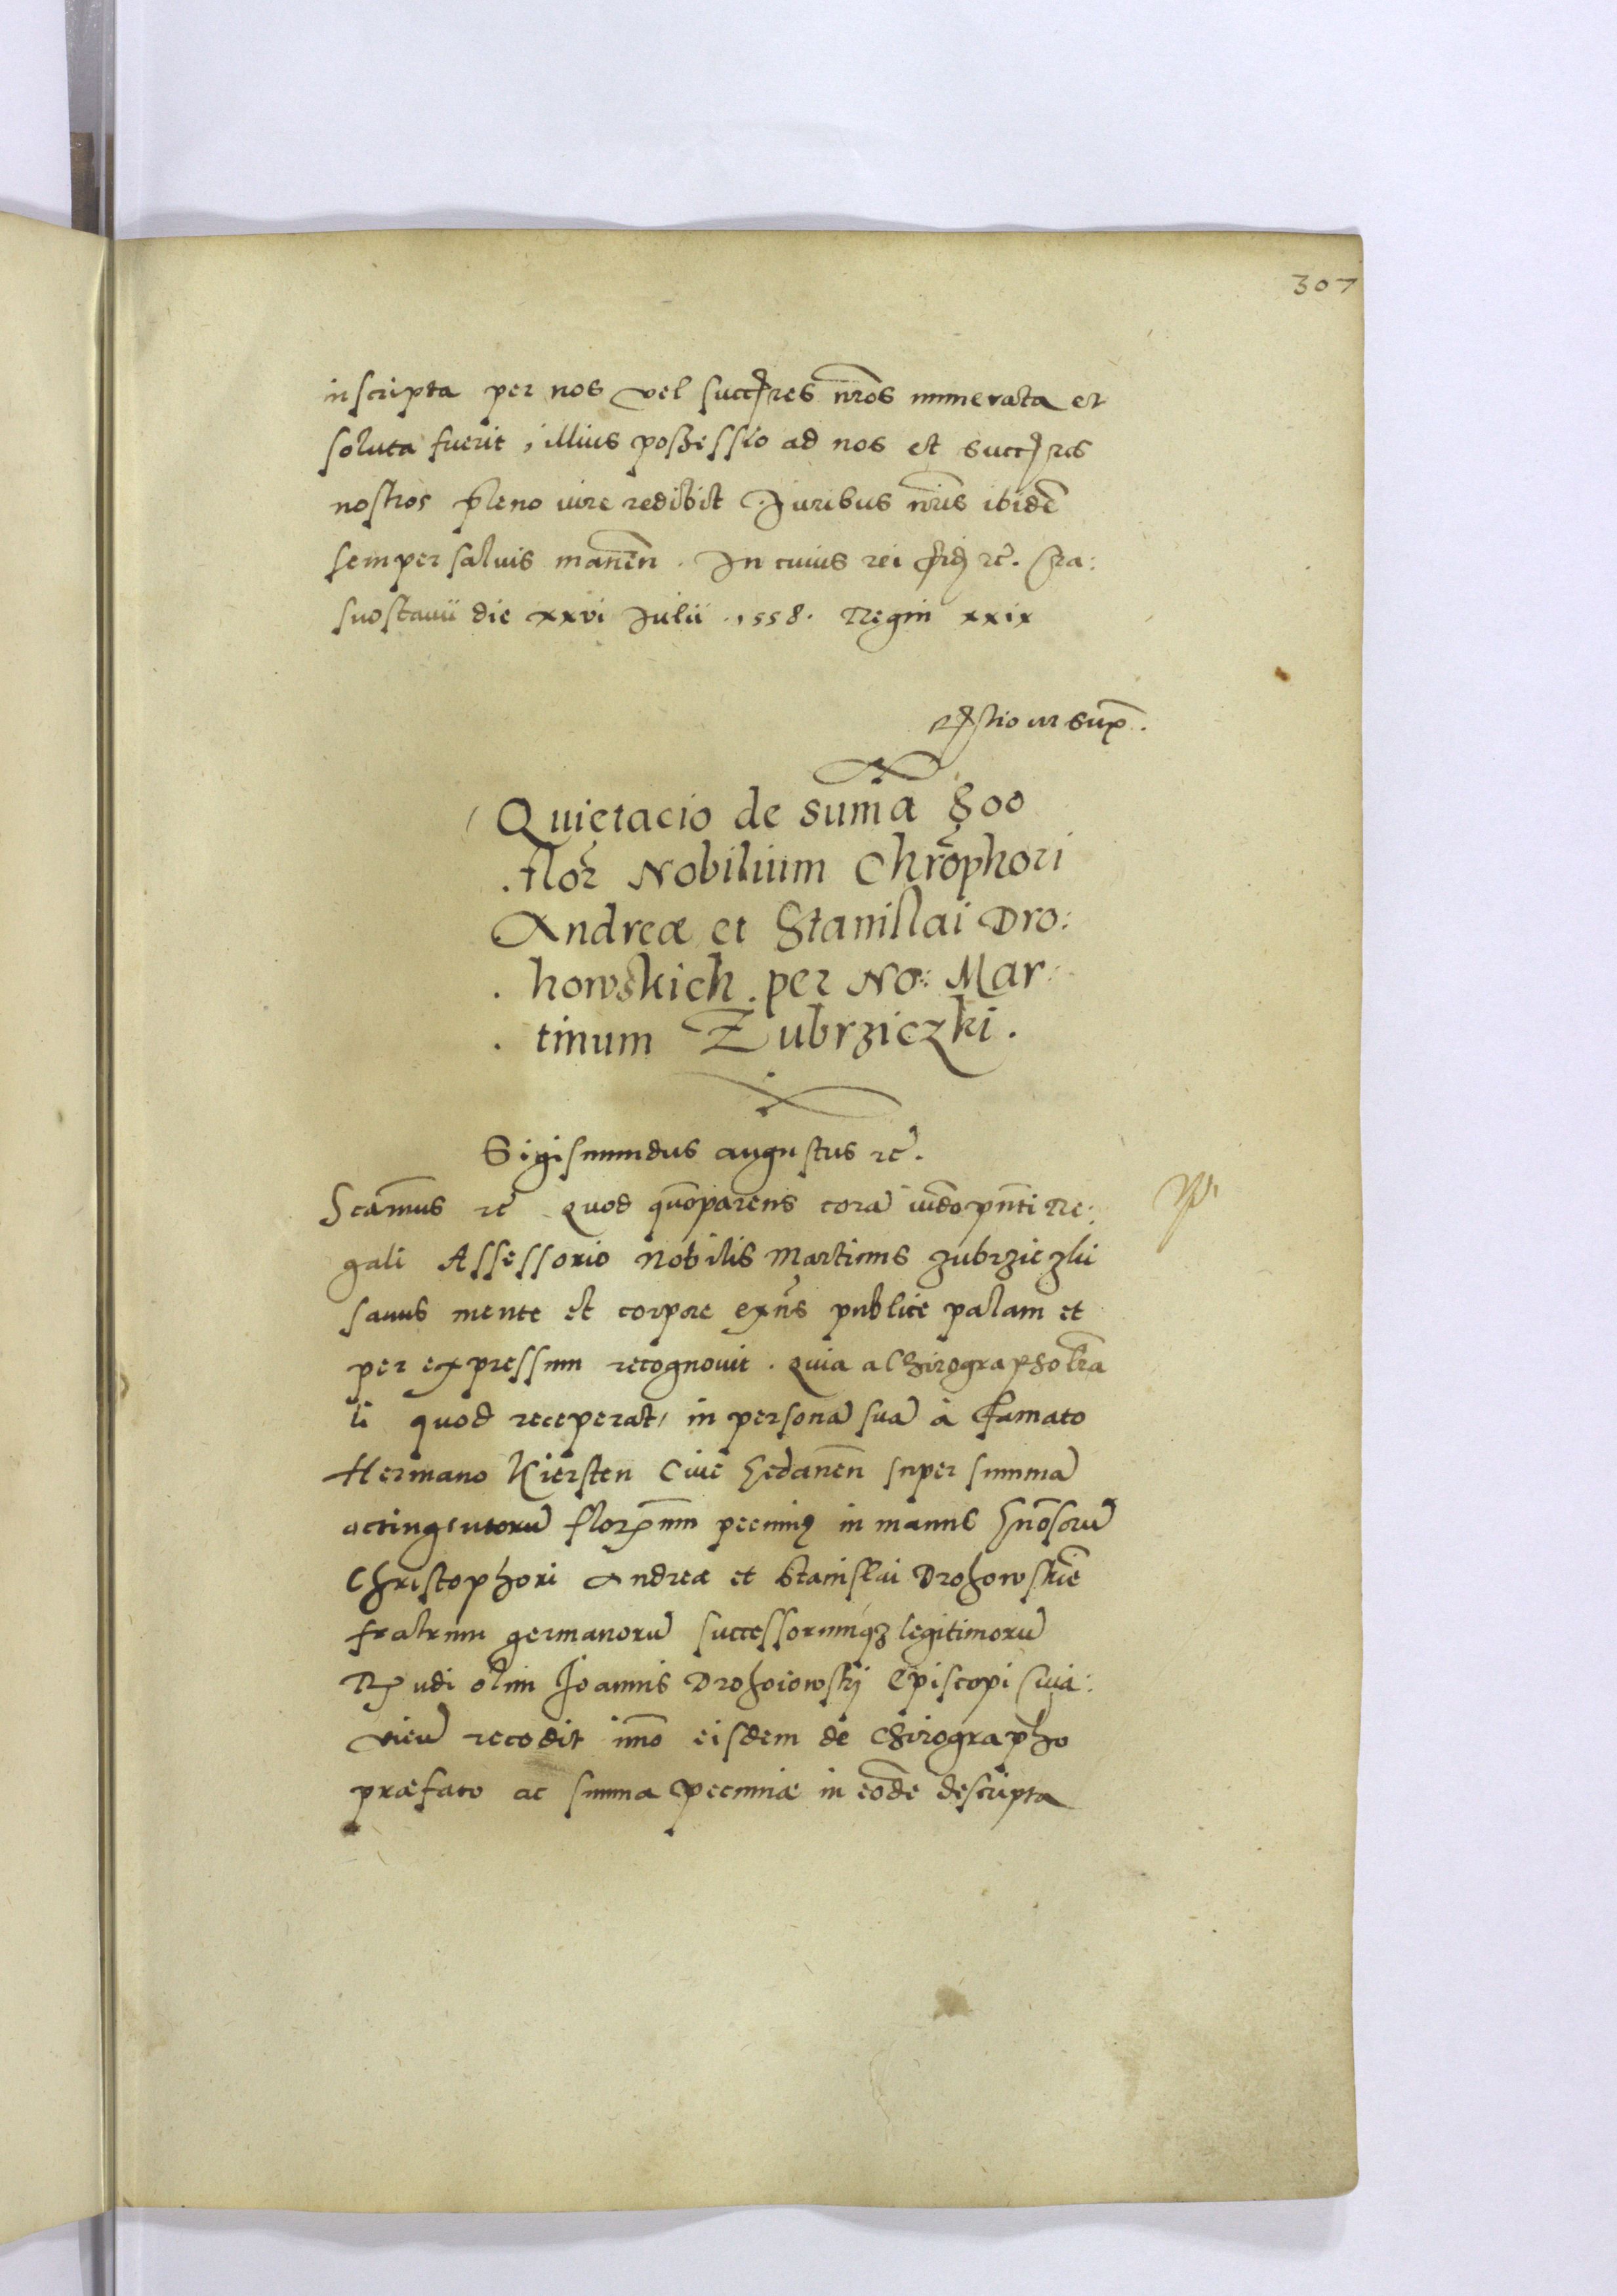 307
inscripta per nos vel succres nros numerata et
soluta fuerit, illius possessio ad nos et succres
nostros pleno iure redibit Iuribus nris ibidē
semper saluis manēn. In cuius rei fidē rc̄. Cra:
snostauii die xxvi Iulii .1558. Regni xxix
Rstio ut sup.
Quietacio de sumā 800
. flor Nobilium Chrophori
Andreæ et Stanislai Dro:
. howskich per No: Mar:
. tinum Zubrziczki.
Sigismundus augustus rc̄.
Scamus rc̄ Quod quoparens corā iudo pnti Re:
gali Assessorio Nobilis Martinus Zubrziczki
sanus mente et corpore exns publice palam et
per expressum recognouit. Quia a Chirographo lra
li quod receperat, in personā suā à famato
Hermano Kiersten Ciue Gedanen super summā
octingentorū florenum pecuniæ in manus Gnosorū
Christophori Andreæ et Stanislai Drohowskie
fratrum germanorū successorumqz legitimorū
Rudi olim Ioannis Drohoiowskij Episcopi Cuia:
vien recedit imo eisdem de Chirographo
præfato ac summa pecuniæ in eode descripta